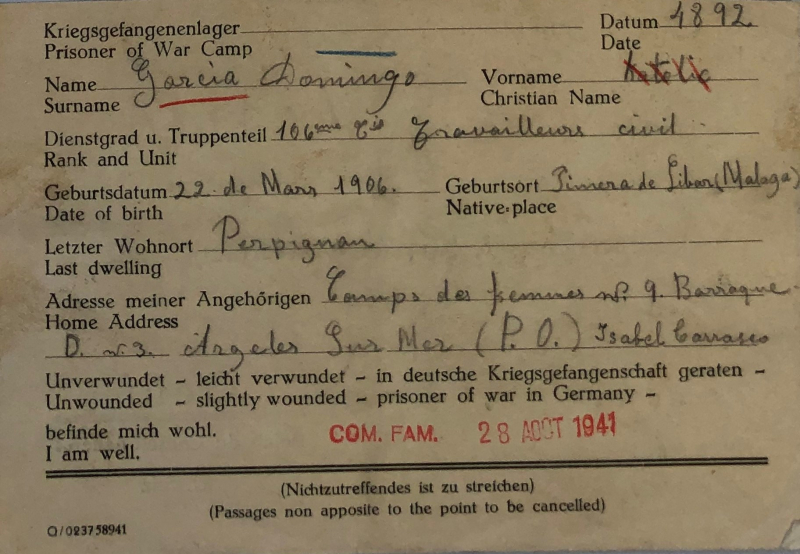 Kriegsgefangenenlager Datum 4892
Prisoner of War Camp Date
Name Garcia Domingo Vorname
Surname Christian Name
Dienstgrad u. Truppenteil 106eme Cie Travailleurs civil
Rank and Unit
Geburtsdatum 22 de Mars 1906. Geburtsort Pimera de Libar (Malaga)
Date of birth Native-place
Letzter Wohnort Perpignan
Last dwelling
Adresse meiner Angehörigen Camps des femmes nº. 9. Barraque
Home Address
D. nº 3. Argeles Sur Mer (P. O.) Isabel Carrasco
Unverwundet – leicht verwundet – in deutsche Kriegsgefangenschaft geraten –
Unwounded – slightly wounded – prisoner of war in Germany –
befinde mich wohl.
COM. FAM. 28 AOUT 1941
I am well.
(Nichtzutreffendes ist zu streichen)
(Passages non apposite to the point to be cancelled)
Q/023758941